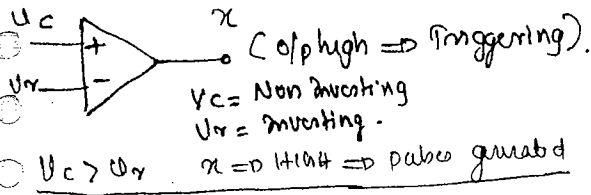 Uc x
+ (o/p high ⇒ Triggering).
Ur -
Vc = Non Inverting
Ur = Inverting.
Uc > Ur x ⇒ HIGH ⇒ pulses generated